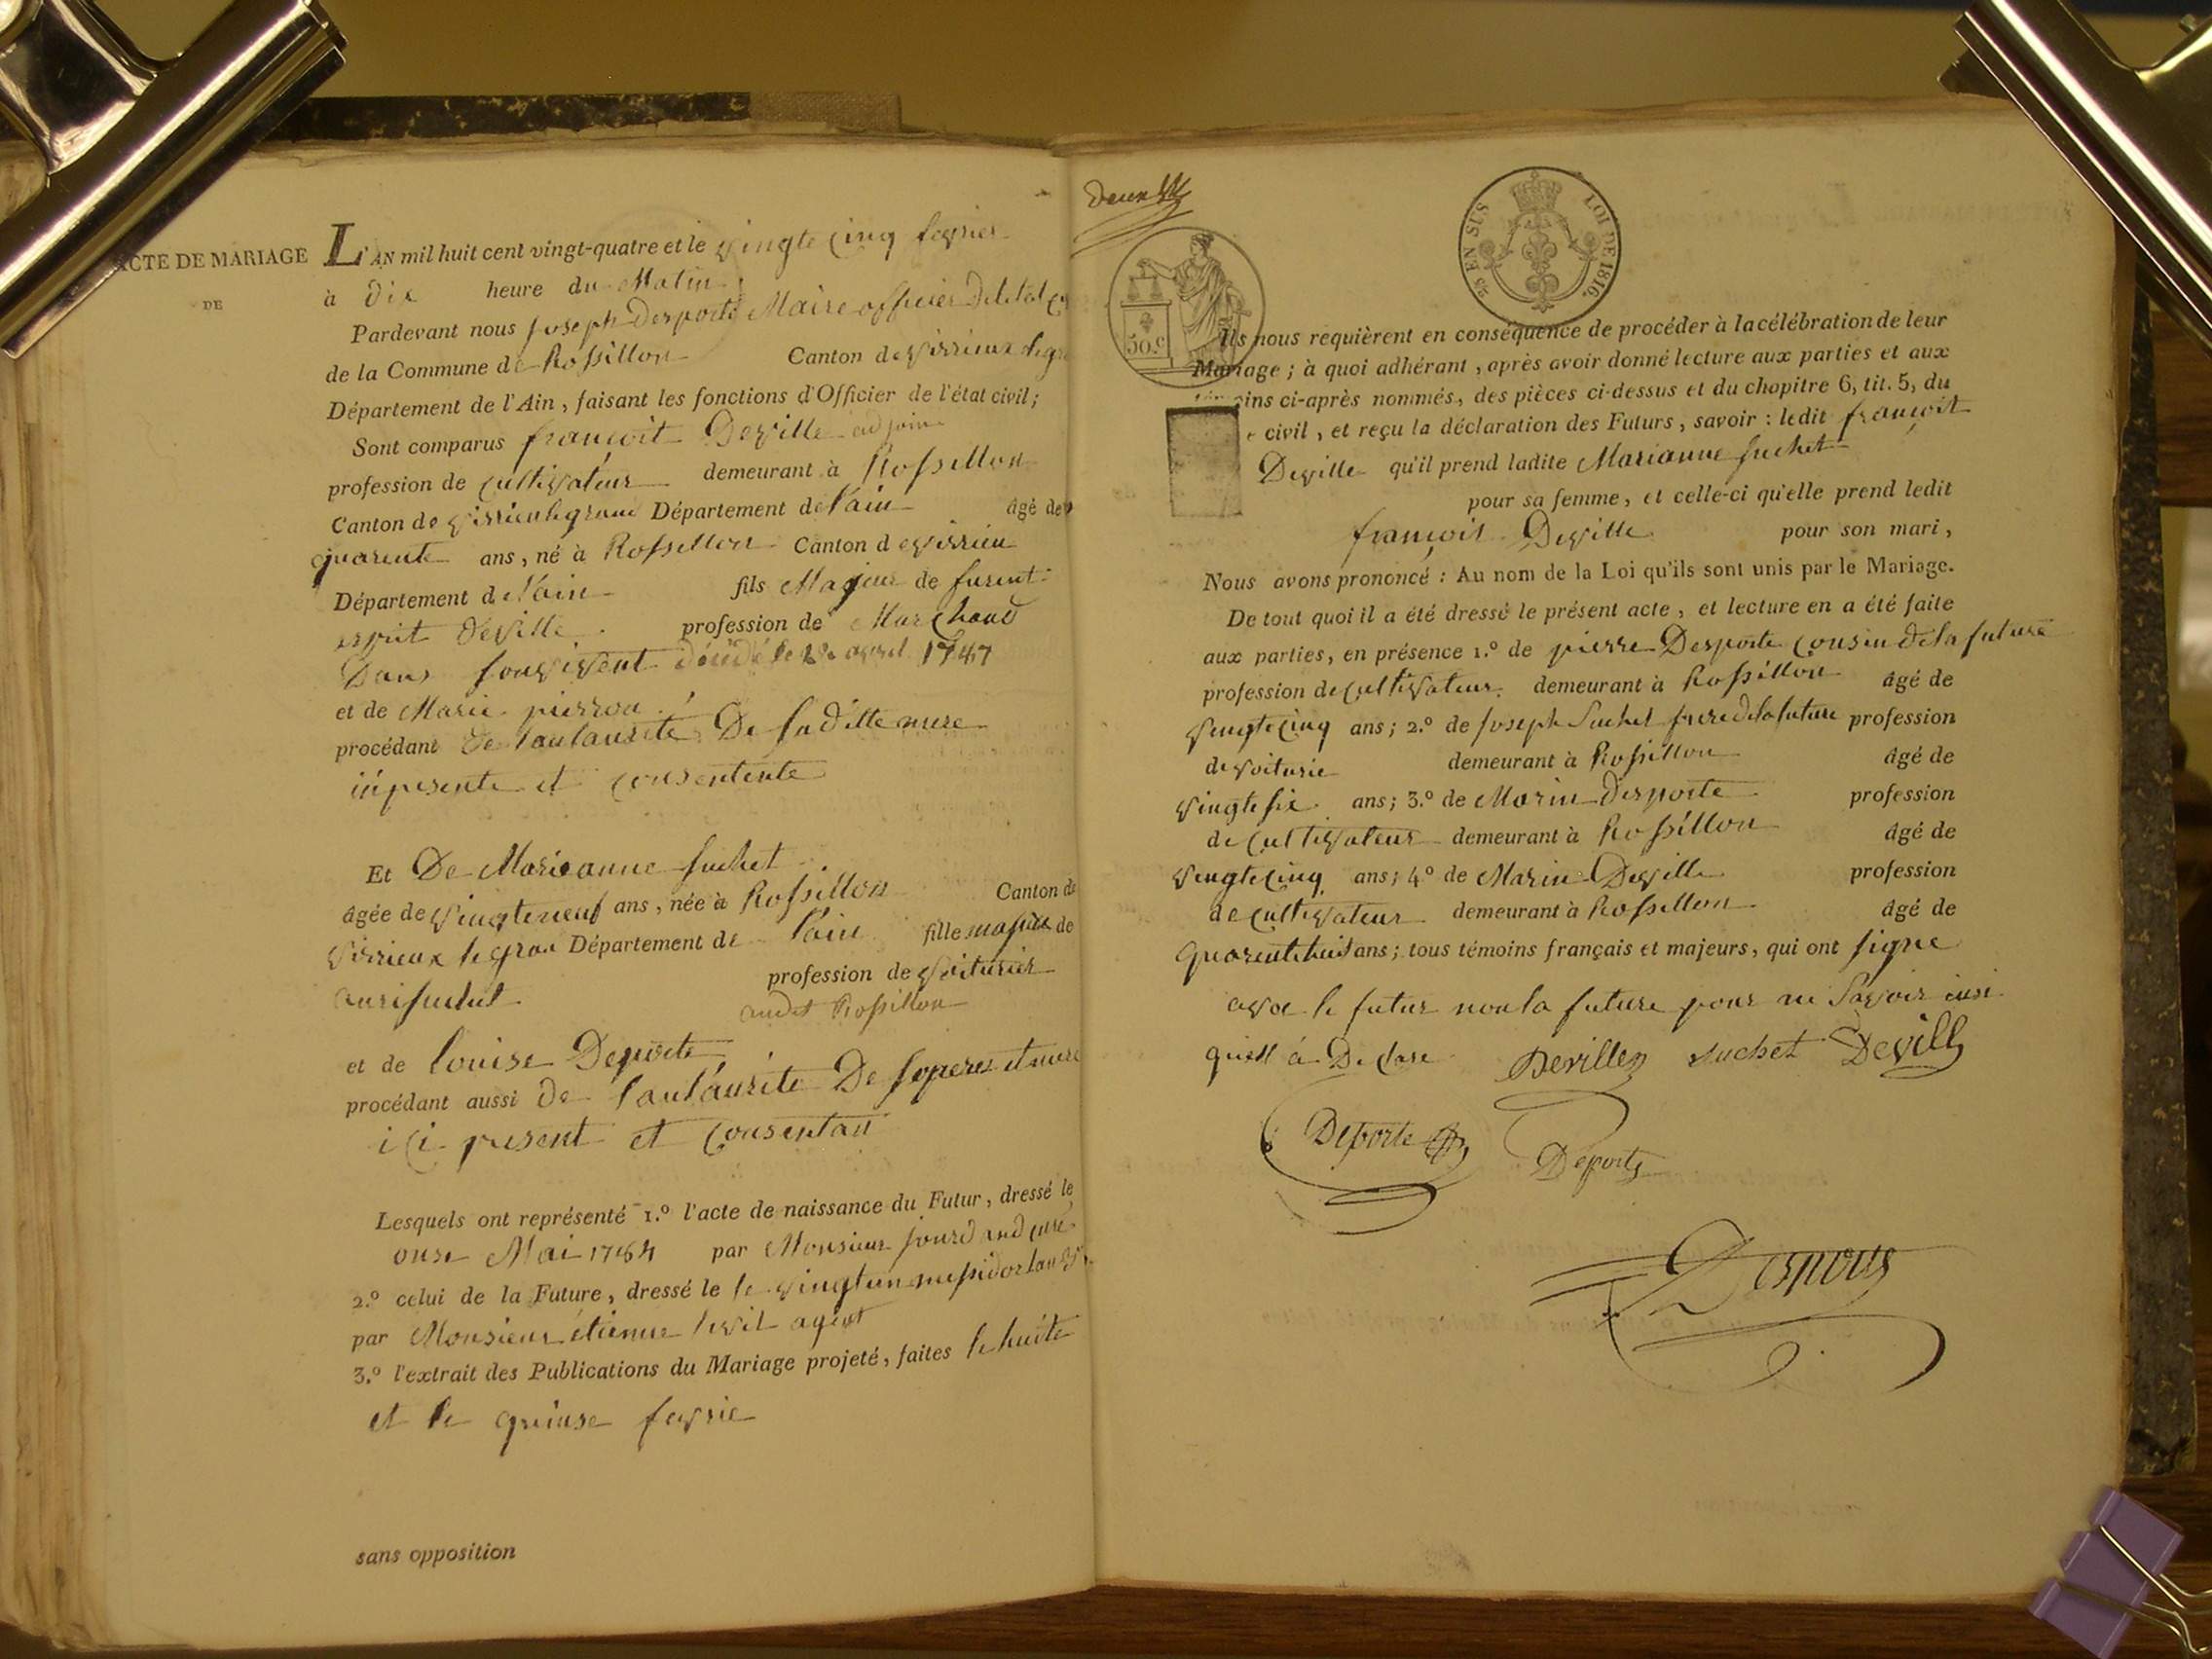 ACTE DE MARIAGE
DE
L'AN mil huit cent vingt-quatre et le vingte cinq fevrier
à dix heure du Matin
Pardevant nous joseph Desporte Maire officier De letat
de la Commune de Rossillon Canton de virrieux legra
Département de l'Ain, faisant les fonctions d'Officier de l'état civil;
Sont comparus françoit Deville adjoin
profession de cultivateur demeurant à Rossillon
Canton de virrieu legrand Département de l'ain âgé de
quarente ans, né à Rossillon Canton de virrieu
Département de l'ain fils Majeur de
esprit deville profession de Marchand
Dans son vivent décédé le avril 1787
et de Marie pierron
procédant De lautaurité De sa ditte mere
ici presente et consentente
Et De Marieanne suchet
âgée de vingteneuf ans, née à Rossillon Canton de
virrieux le gran Département de l'ain fille majeure de
profession de voiturier
audit Rossillon
et de louise Deporte
procédant aussi de l'autaurite De so peres et mere
ici present et consentan
Lesquels ont représenté 1.º l'acte de naissance du Futur, dressé le
onse Mai 1784 par Monsieur jourdand curé
2.º celui de la Future, dressé le le vingt un messidor lan
par Monsieur étienne agent
3.º l'extrait des Publications du Mariage projeté, faites le huite
et le quinse fevrie
sans opposition
deux
25 EN SUS
LOI DE 1816.
50.c
Ils nous requièrent en conséquence de procéder à la célébration de leur
Mariage; à quoi adhérant, après avoir donné lecture aux parties et aux
ins ci-après nommés, des pièces ci-dessus et du chapitre 6, tit. 5, du
civil, et reçu la déclaration des Futurs, savoir: ledit françoit
Deville qu'il prend ladite Marianne suchet
pour sa femme, et celle-ci qu'elle prend ledit
françoit Deville pour son mari,
Nous avons prononcé: Au nom de la Loi qu'ils sont unis par le Mariage.
De tout quoi il a été dressé le présent acte, et lecture en a été faite
aux parties, en présence 1.º de pierre Desporte cousin de la future
profession de cultivateur. demeurant à Rossillon âgé de
vingtecinq ans; 2.º de joseph Suchet frere de la future profession
de voiturie demeurant à Rossillon âgé de
vingte six ans; 3.º de Marin Desporte profession
de cultivateur demeurant à Rossillon âgé de
vingtecinq ans; 4º de Marin Deville profession
de cultivateur demeurant à Rossillon âgé de
quarentehuit ans; tous témoins français et majeurs, qui ont signe
avec le futur non la future pour ne savoir insi
quell a De clare Deville suchet Devill
Deporte Deporte
Desporte